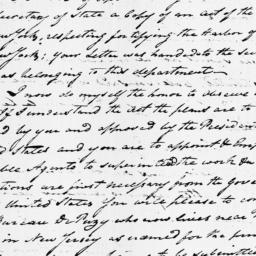 Secretary of State a Copy of an act of the
respecting fortifying the Harbor of
your letter was handed to the Sec
as belonging to this department
I now do myself the honor to observe
I understand the act the plans are to
d by you and approved by the Presiden
ed States and you are to appoint & em
ble Agents to superintend the work &
tions are just necessary from the Gove
United States You will please to con
Bureau De Puzy who now lives near
in New Jersey as named for the pur
to be submitted